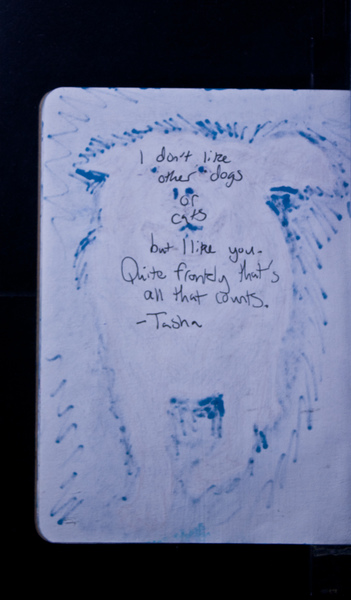 I don't like
other dogs
or
cats
but I like you.
Quite frankly that's
all that counts.
-Tasha